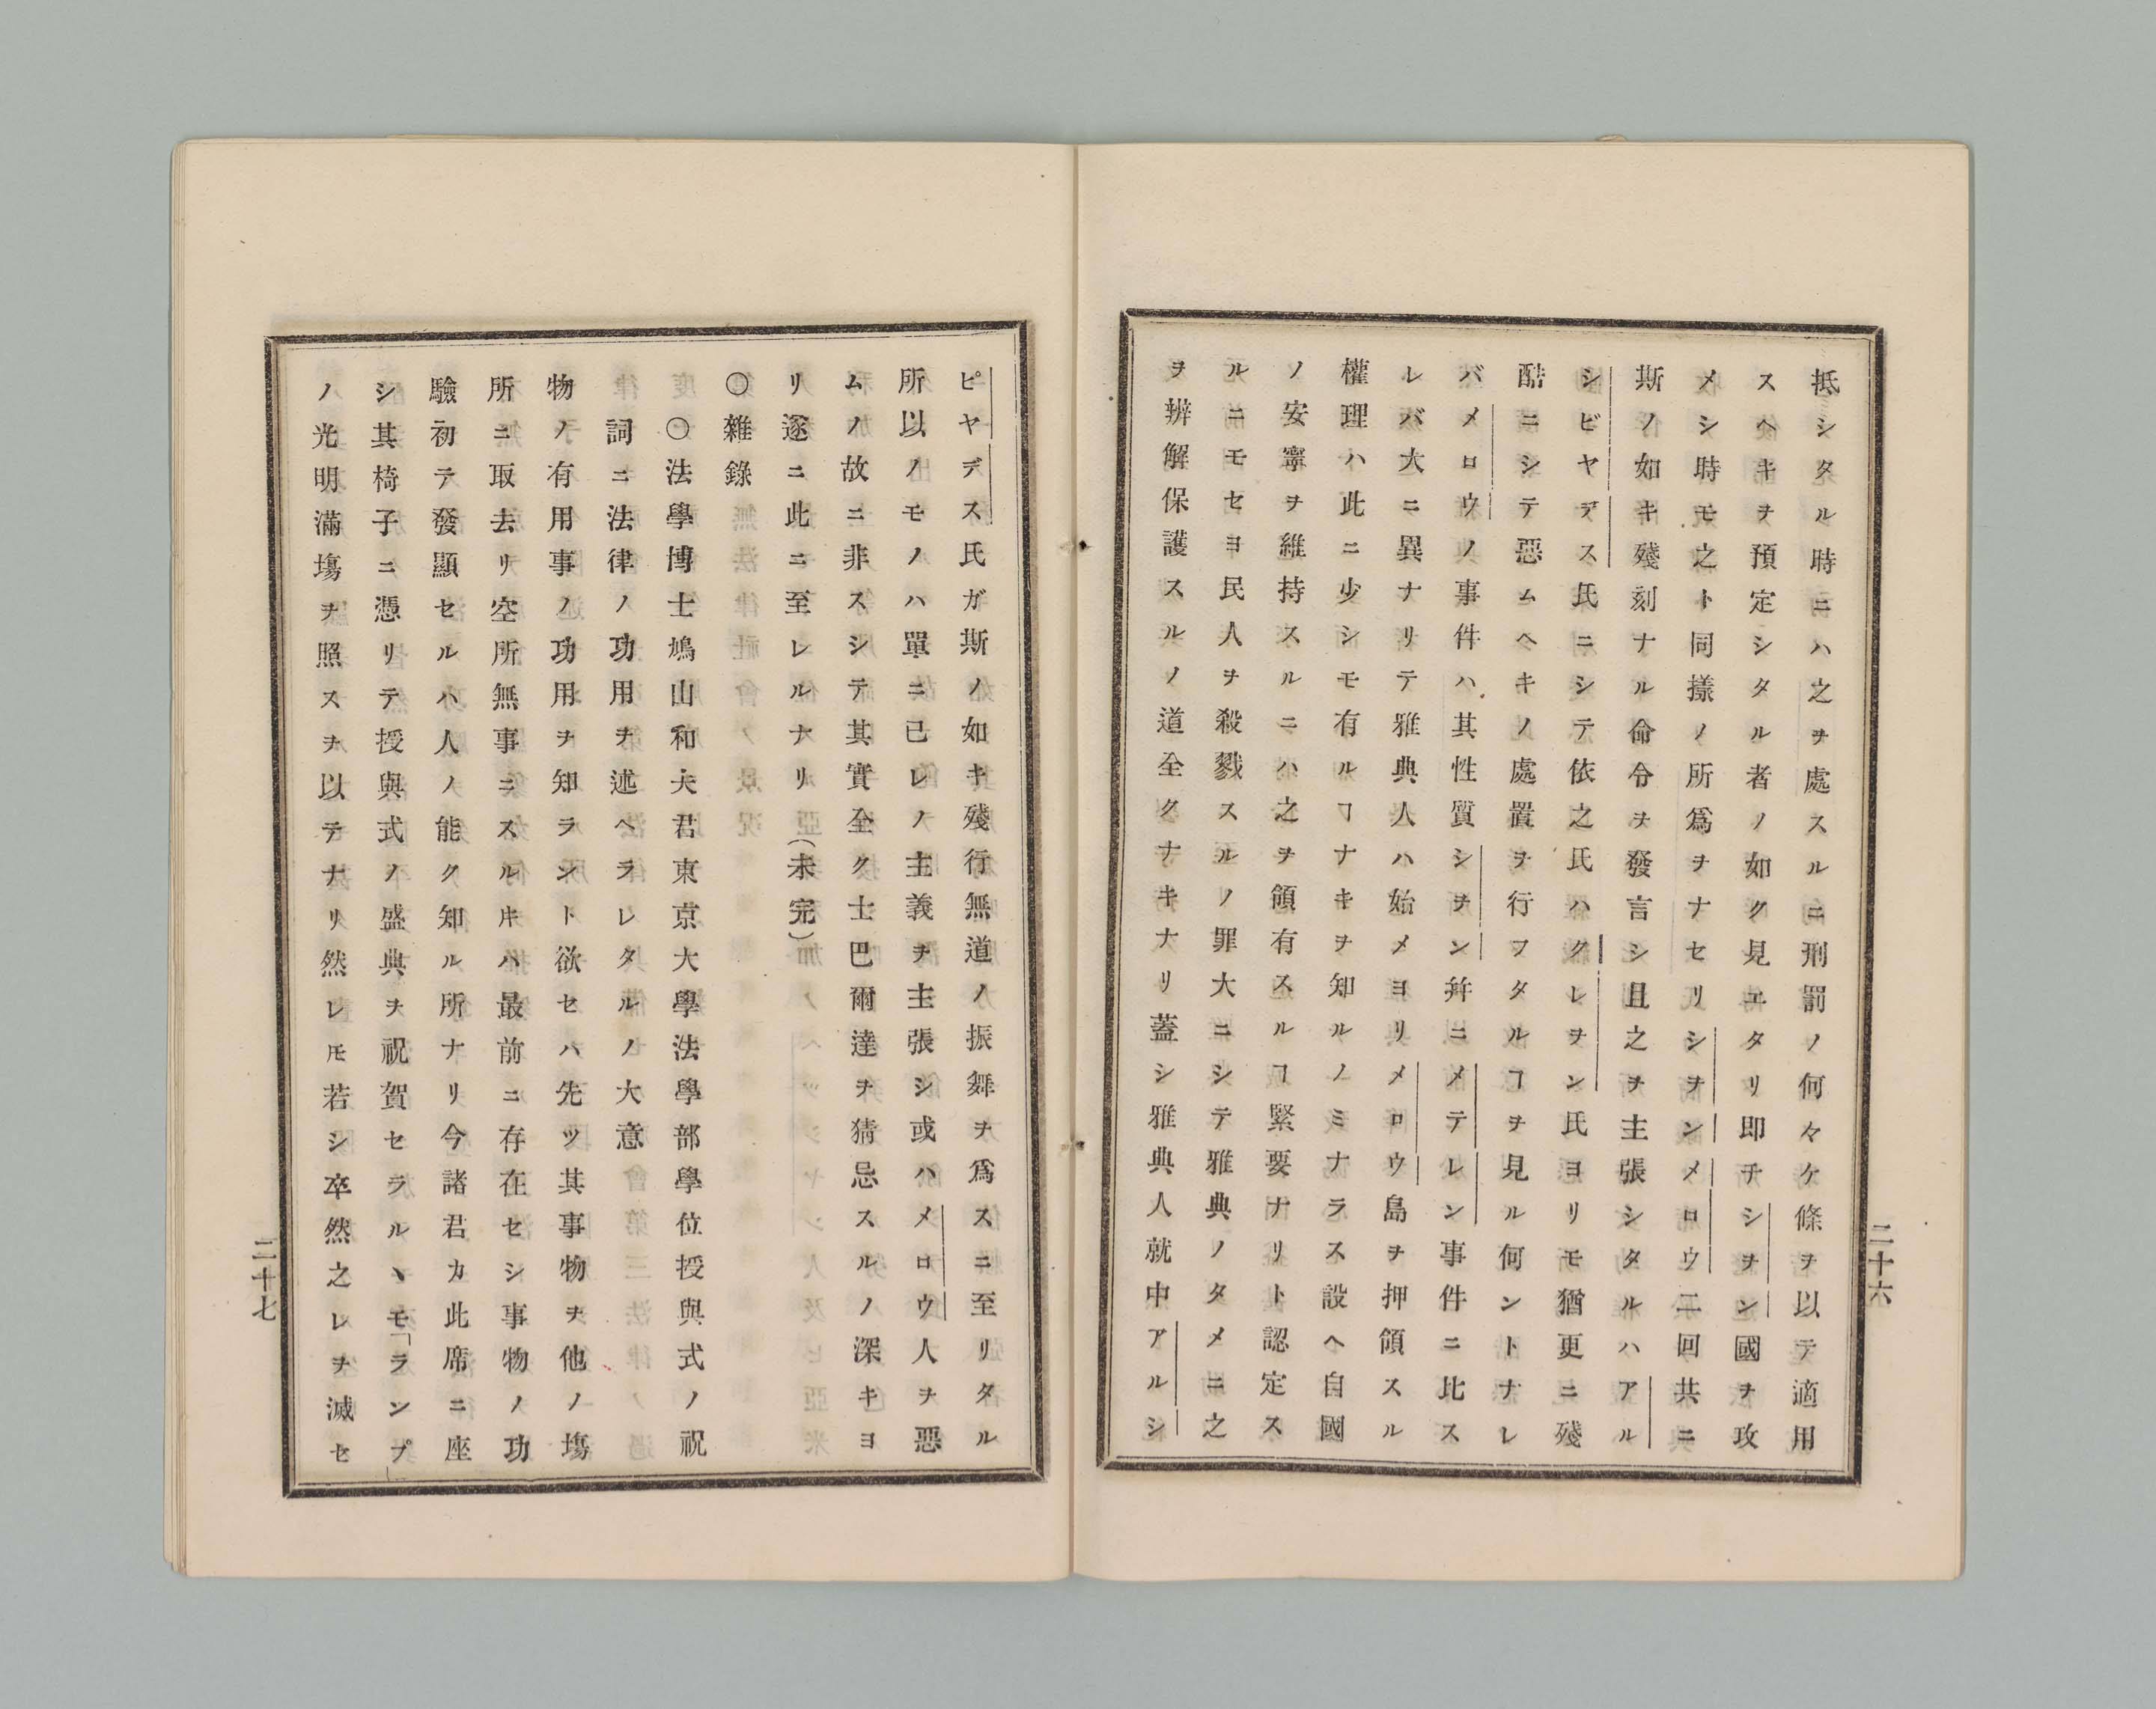 抵シタル時ニハ之ヲ處スルニ刑罰ノ何々ケ條ヲ以テ適用
スヘキヲ預定シタル者ノ如ク見エタリ即チシヲン國ヲ攻
メシ時モ之ト同樣ノ所爲ヲナセリシヲンメロウ二回共ニ
斯ノ如キ殘刻ナル命令ヲ發言シ且之ヲ主張シタルハアル
シビヤデス氏ニシテ依之氏ハクレヲン氏ヨリモ猶更ニ殘
酷ニシテ惡ムヘキノ處置ヲ行フタルヿヲ見ル何ントナレ
バメロウノ事件ハ其性質シヲン幷ニメテレン事件ニ比ス
レバ大ニ異ナリテ雅典人ハ始メヨリメロウ島ヲ押領スル
權理ハ此ニ少シモ有ルヿナキヲ知ルノミナラス設ヘ自國
ノ安寧ヲ維持スルニハ之ヲ領有スルヿ緊要ナリト認定ス
ルニモセヨ民人ヲ殺戮スルノ罪大ニシテ雅典ノタメニ之
ヲ辨解保護スルノ道全クナキナリ蓋シ雅典人就中アルシ
二十六
ピヤデス氏ガ斯ノ如キ殘行無道ノ振舞ヲ爲スニ至リタル
所以ノモノハ單ニ己レノ主義ヲ主張シ或ハメロウ人ヲ惡
ムノ故ニ非スシテ其實全ク士巴爾達ヲ猜忌スルノ深キヨ
リ逐ニ此ニ至レルナリ(未完)
〇雜錄
〇法學博士鳩山和夫君東京大學法學部學位授與式ノ祝
詞ニ法律ノ功用ヲ述ヘラレタルノ大意
物ノ有用事ノ功用ヲ知ラント欲セハ先ツ其事物ヲ他ノ塲
所ニ取去リ空所無事ニスルㇳキハ最前ニ存在セシ事物ノ功
驗初テ發顯セルハ人ノ能ク知ル所ナリ今諸君カ此席ニ座
シ其椅子ニ憑リテ授與式ノ盛典ヲ祝賀セラルヽモ「ランプ」
ノ光明滿塲ヲ照スヲ以テナリ然レㇳモ若シ卒然之レヲ滅セ
二十七